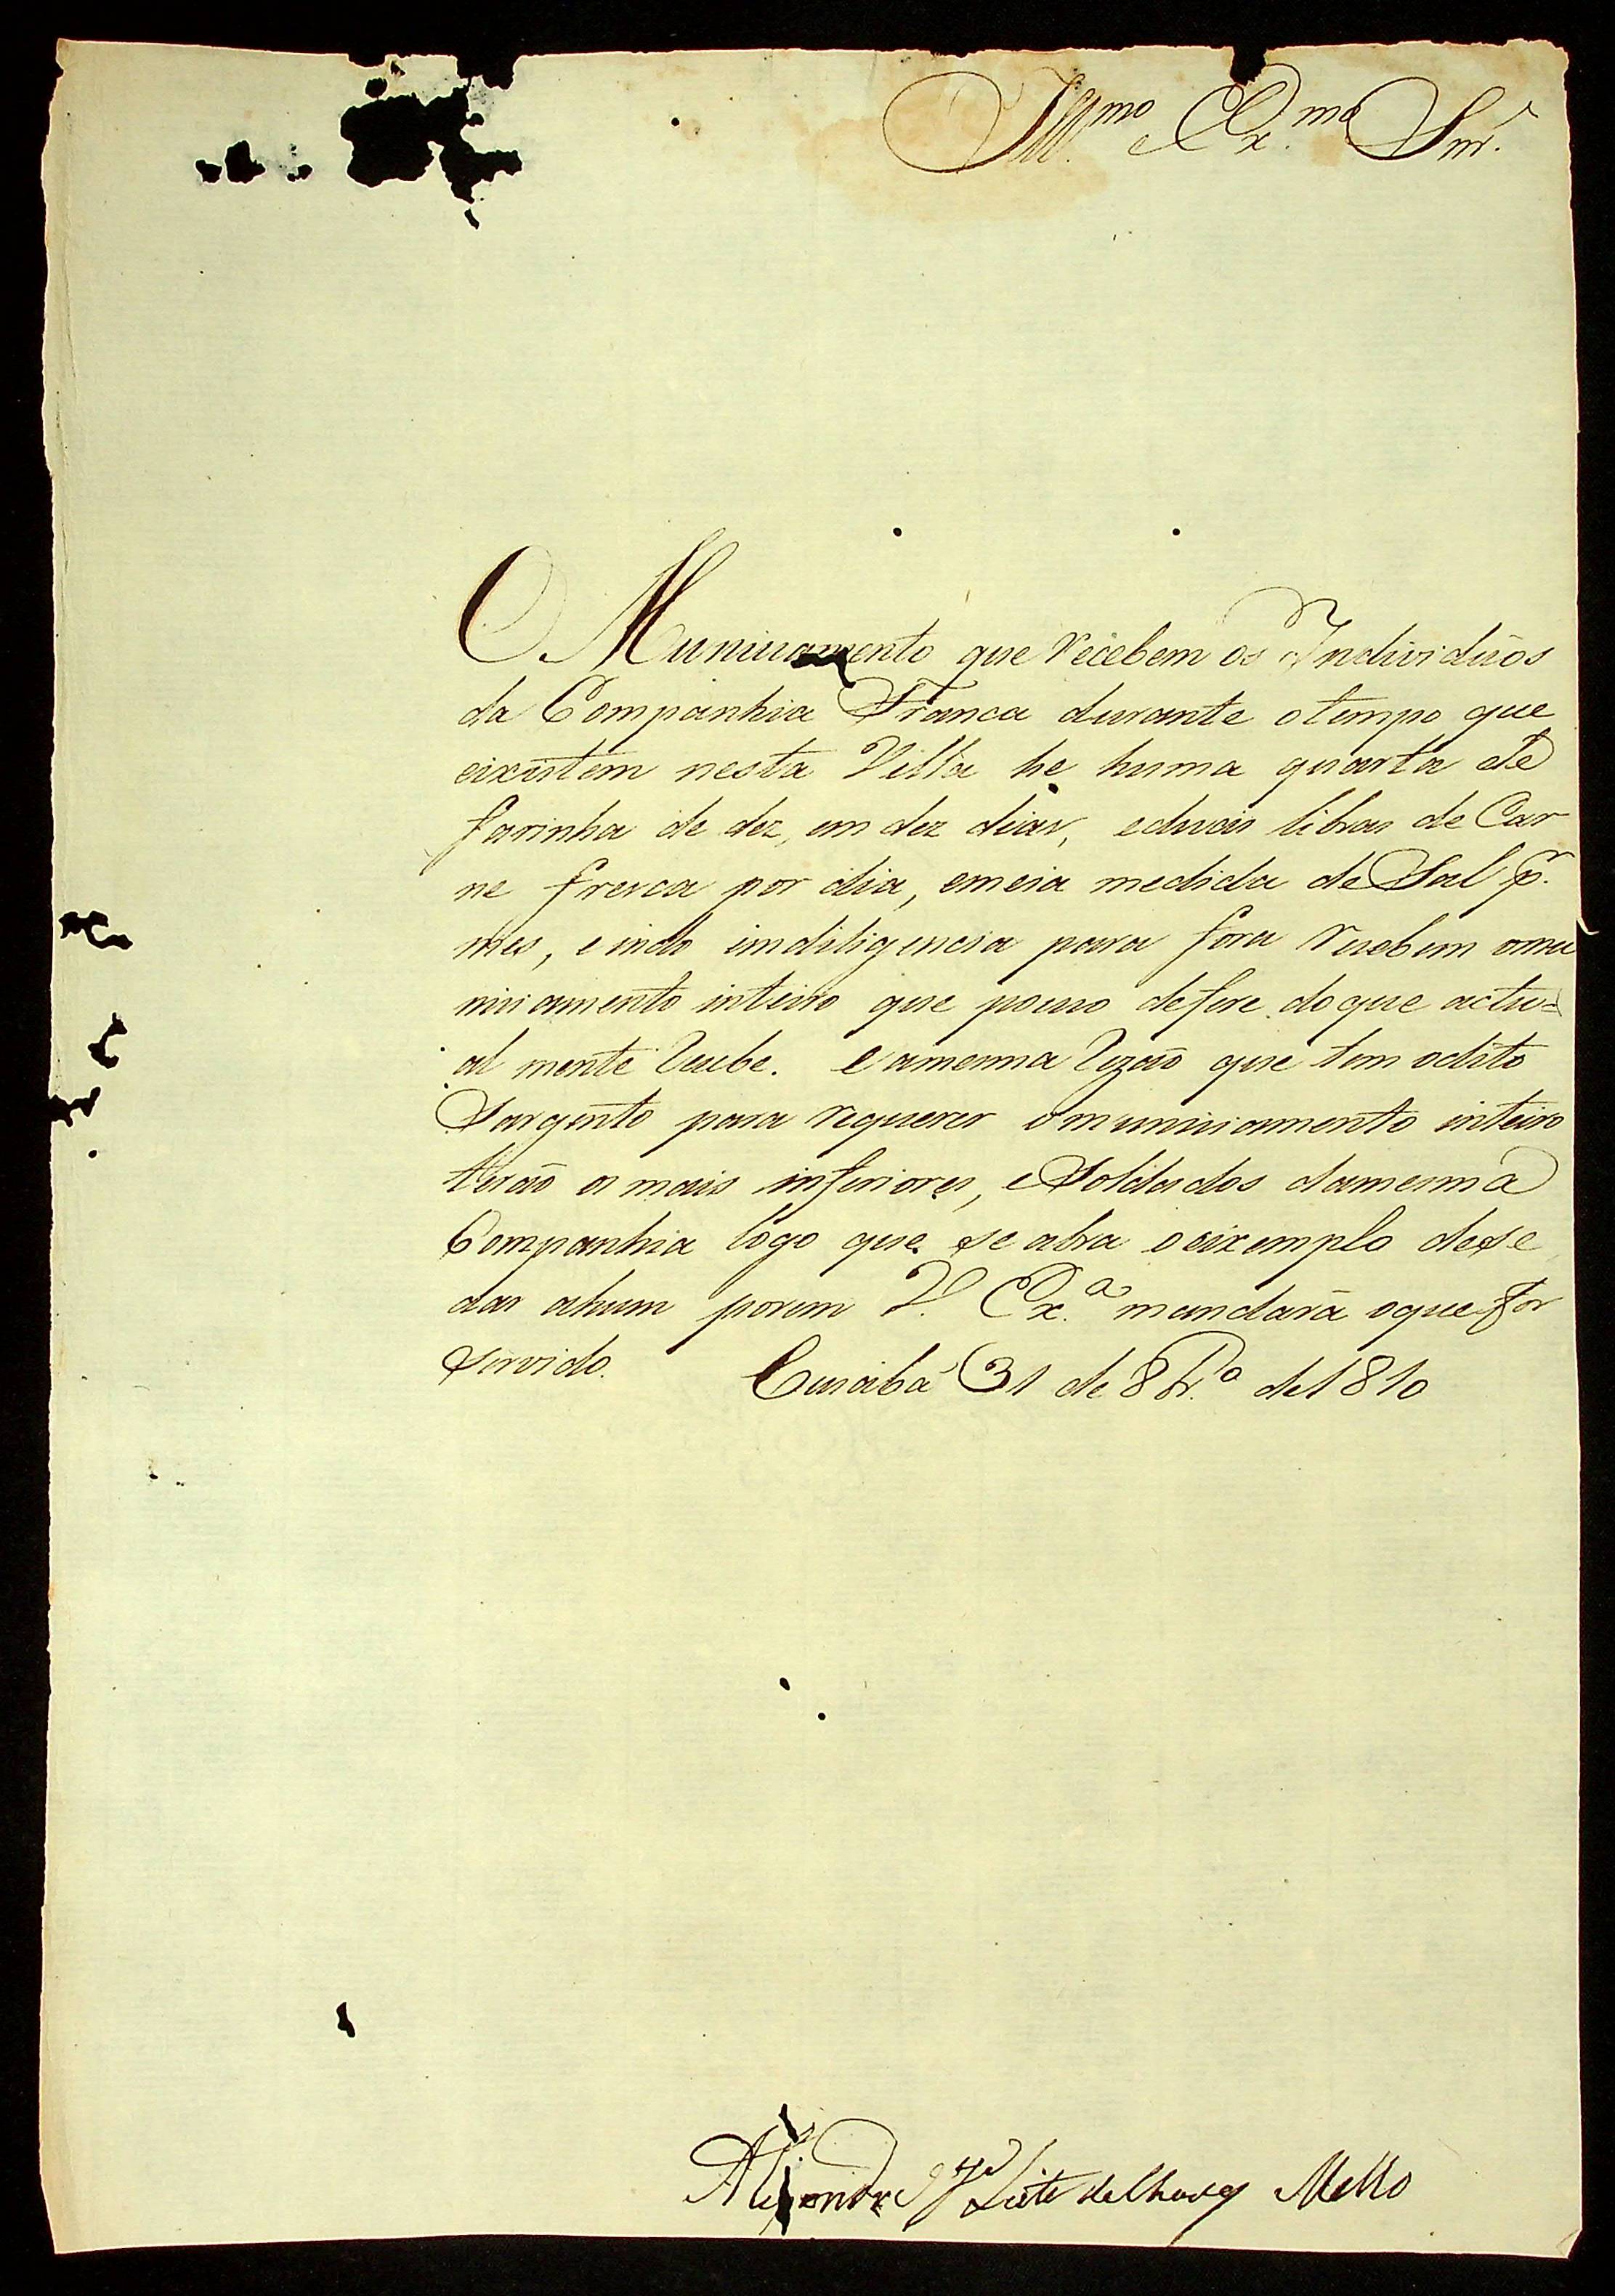 Ill.mo e Ex.mo Snr.
O Municiamento que recebem os Individuos
da Companhia Franca durante otempo que
eixistem nesta Villa he huma quarta de
farinha de dez, em dez dias, eduas libras de Car
ne fresca por dia, emeia medida de Sal p.r
mes, e indo imdiligencia para fora recebem omu
niciamento inteiro que pouco defere doque actu=
al mente recebe. Eamesma rezaõ que tem odito
Sargento para requerer omuniciamento inteiro
teraõ os mais inferiores, eSoldados damesma
Companhia logo que se abra oeixemplo dese
dar ahum porem V. Ex.a mandará oque for
servido. Cuiabá 31 de 8br.o de1810
Leite Mello